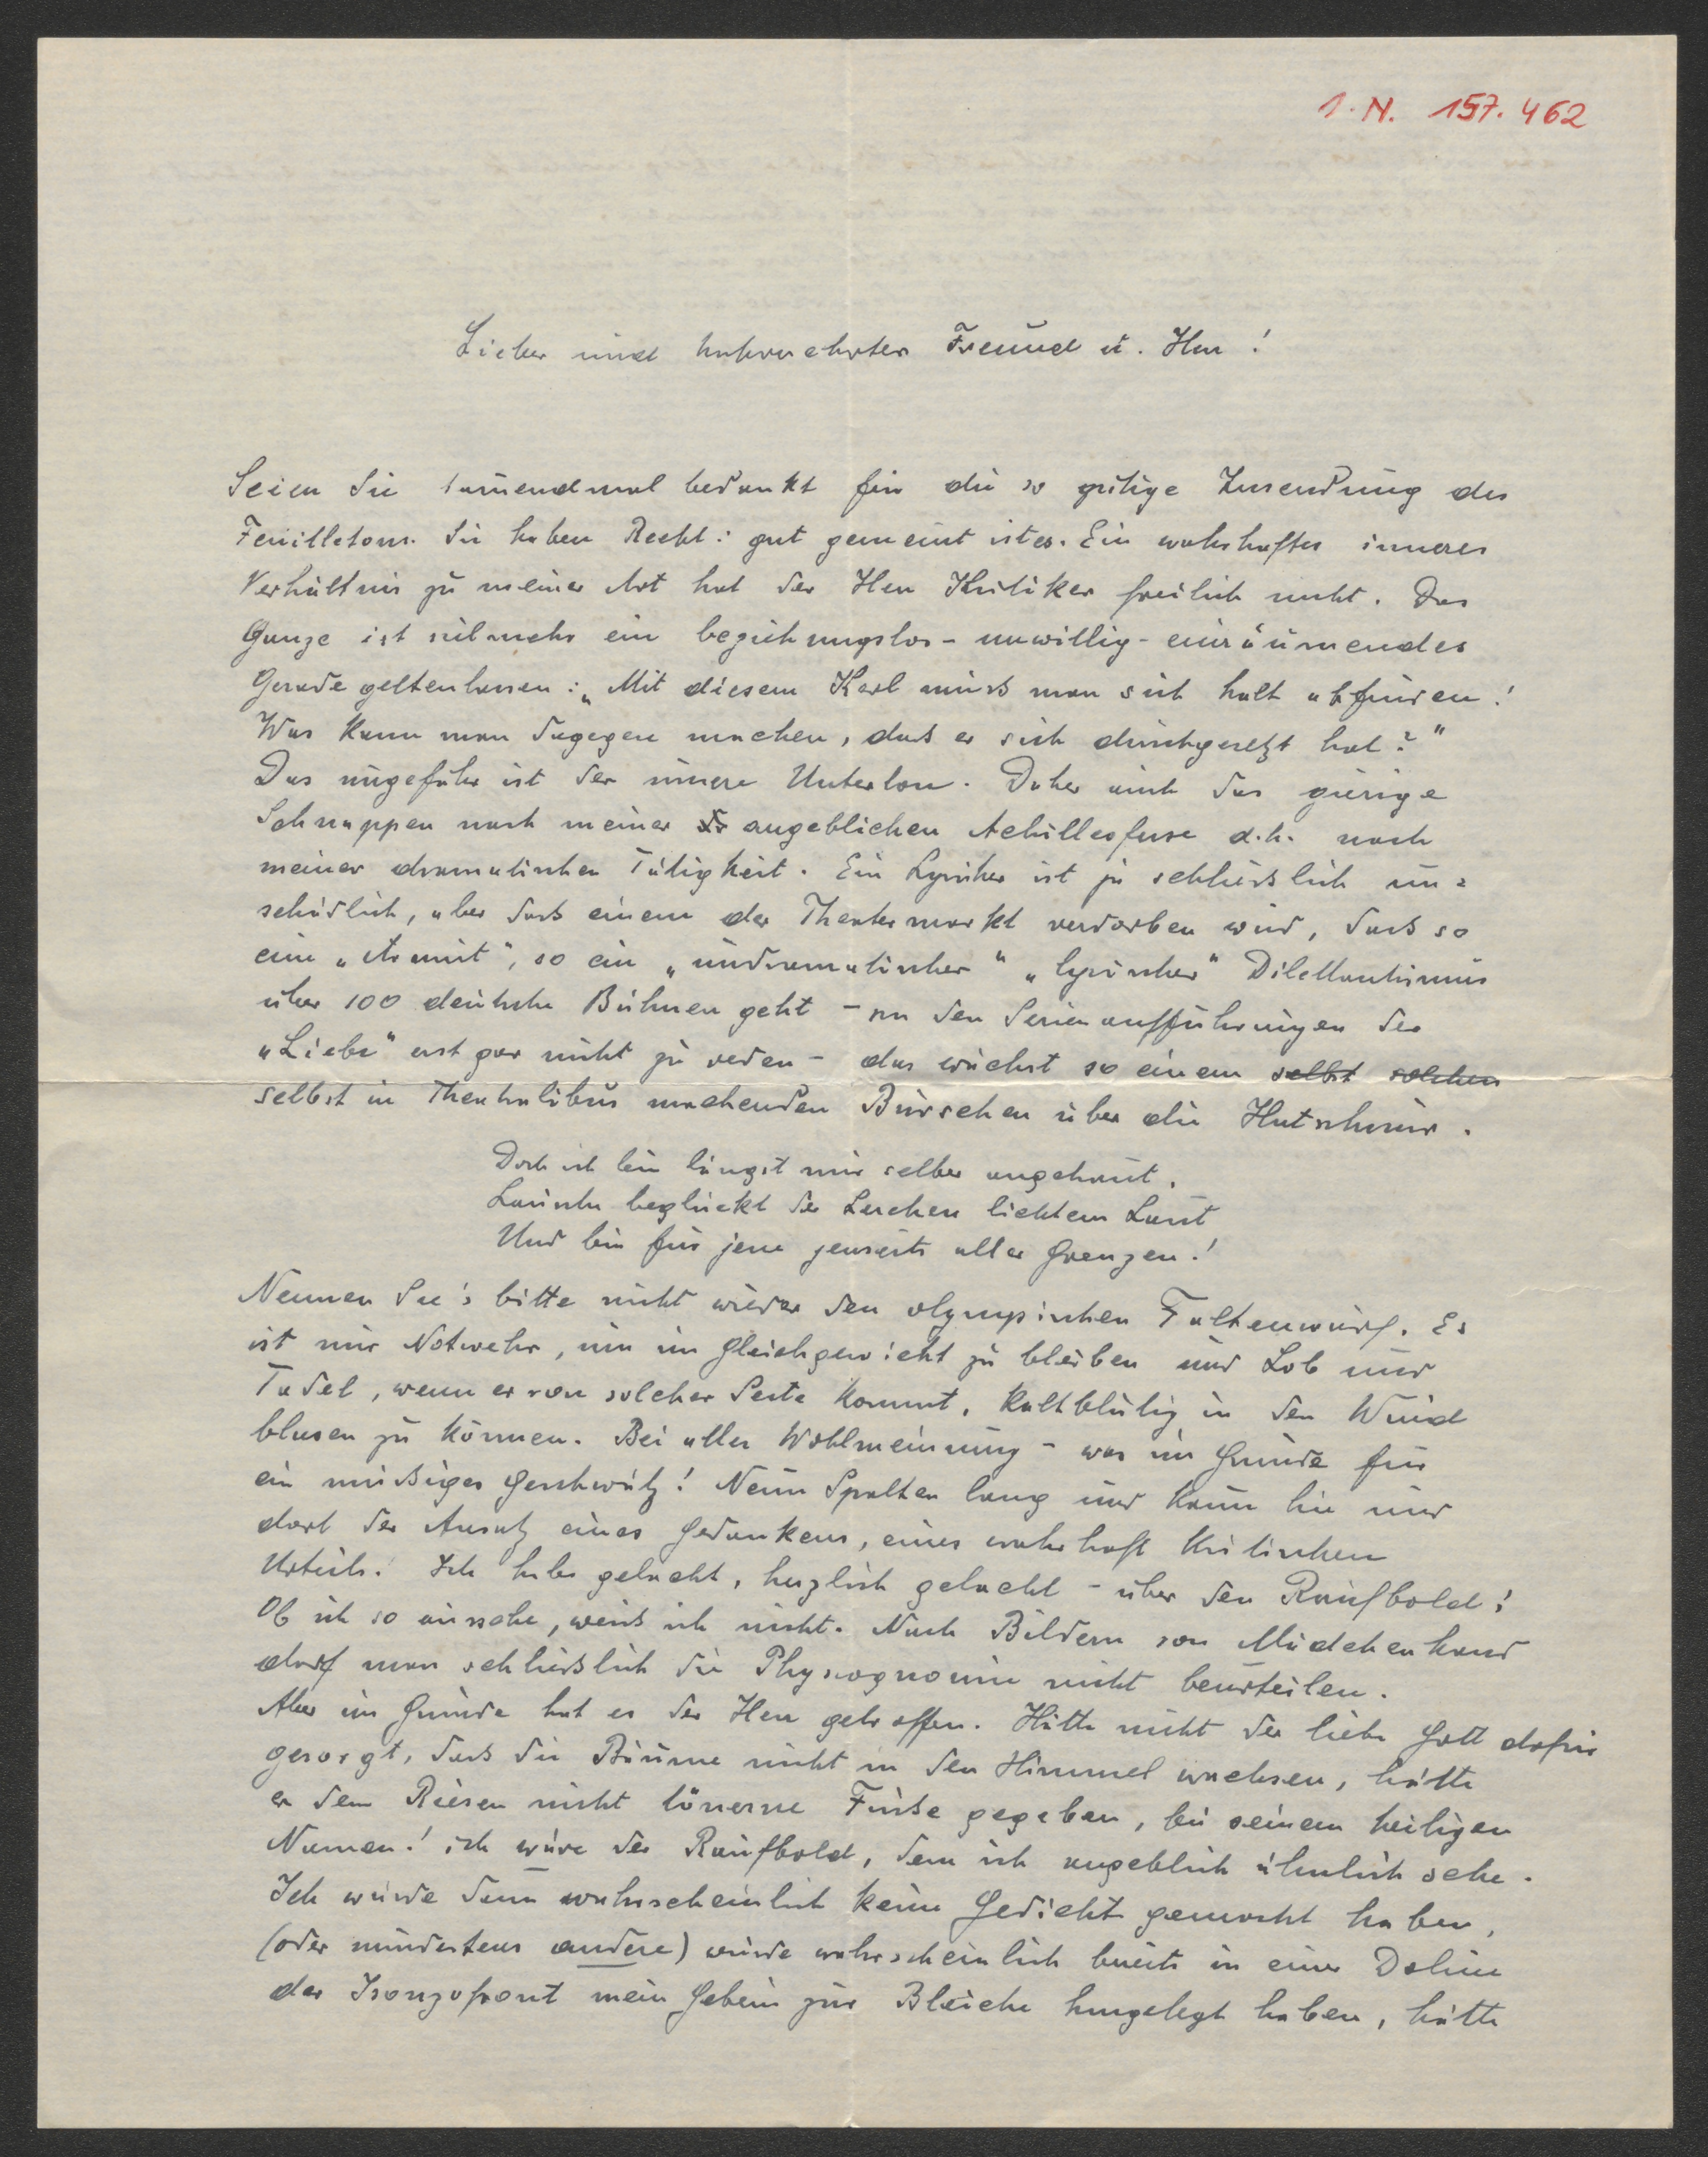 I. N. 157.462
Lieber und hochverehrter Freund u. Herr!
Seien Sie tausendmal bedankt für die so gütige Zusendung des
Feuilletons. Sie haben Recht: gut gemeint ist es. Ein wahrhaftes inneres
Verhältnis zu meiner Art hat der Herr Kritiker freilich nicht. Das
Ganze ist vielmehr ein beziehungslos-unwillig-einräumendes
Geradegeltenlassen: „Mit diesem Kerl muss man sich halt abfinden!
Was kann man dagegen machen, dass er sich durchgesetzt hat?"
Das ungefähr ist der innere Unterton. Daher auch das gierige
Schnappen nach meiner dr angeblichen Achillesferse d.h. nach
meiner dramatischen Tätigkeit. Ein Lyriker ist ja schliesslich un=
schädlich, aber dass einem der Theatermarkt verdorben wird, dass so
eine „Armut", so ein „undramatischer" „lyrischer" Dilettantismus
über 100 deutsche Bühnen geht – von den Serienaufführungen der
„Liebe" erst gar nicht zu reden – das wächst so einem selbst solchen
selbst in Theatralibus machenden Burschen über die Hutschnur.
Doch ich bin längst mir selber angetraut,
Lausche beglückt der Lerchen lichtem Laut
Und bin für jene jenseits aller Grenzen!
Nennen Sie's bitte nicht wieder den olympischen Faltenwurf. Es
ist nur Notwehr, um im Gleichgewicht zu bleiben und Lob und
Tadel, wenn er von solcher Seite kommt, kaltblütig in den Wind
blasen zu können. Bei aller Wohlmeinung – was im Grunde für
ein müßiges Geschwätz! Neun Spalten lang und kaum hie und
dort der Ansatz eines Gedankens, eines wahrhaft kritischen
Urteils. Ich habe gelacht, herzlich gelacht – über den Raufbold!
Ob ich so aussehe, weiss ich nicht. Nach Bildern von Mädchenhand
darf man schliesslich die Physiognomie nicht beurteilen.
Aber im Grunde hat es der Herr getroffen. Hätte nicht der liebe Gott dafür
gesorgt, dass die Bäume nicht in den Himmel wachsen, hätte
er dem Riesen nicht tönerne Füsse gegeben, bei seinem heiligen
Namen! ich wäre der Raufbold, dem ich angeblich ähnlich sehe.
Ich würde dann wahrscheinlich keine Gedichte gemacht haben,
(oder mindestens andere) würde wahrscheinlich bereits in einer Doline
der Isonzofront mein Gebein zur Bleiche hingelegt haben, hätte